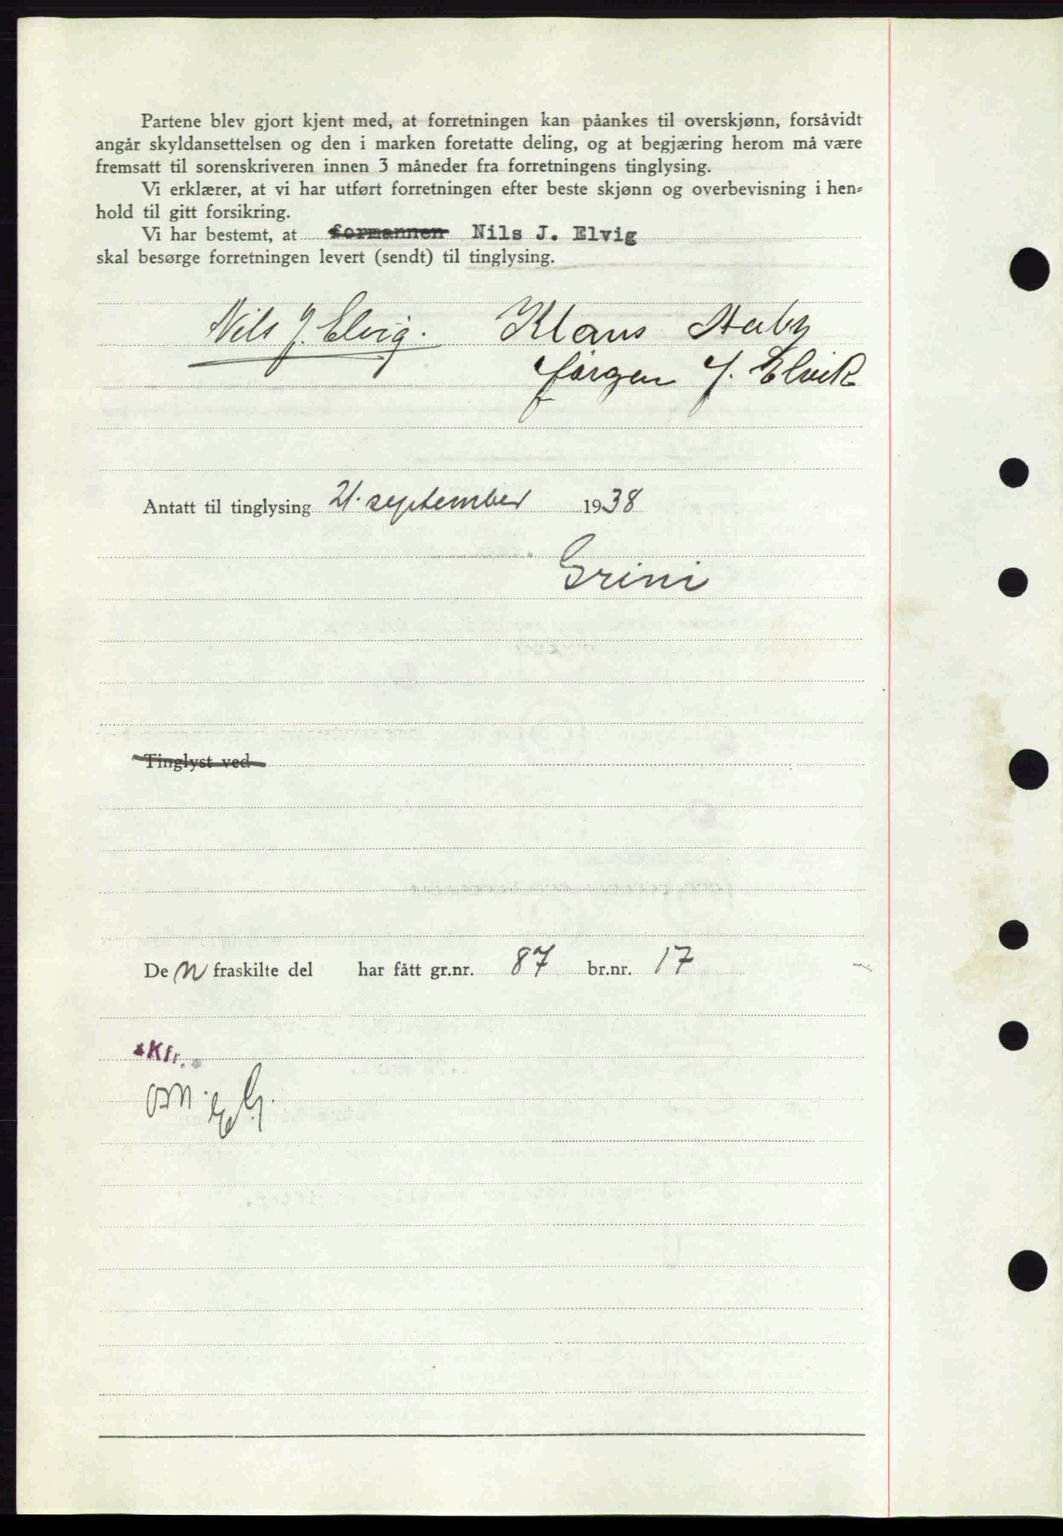 Partene blev gjort kjent med, at forretningen kan påankes til overskjønn, forsåvidt
angår skyldansettelsen og den i marken foretatte deling, og at begjæring herom må være
fremsatt til sorenskriveren innen 3 måneder fra forretningens tinglysing.
Vi erklærer, at vi har utført forretningen efter beste skjønn og overbevisning i hen-
hold til gitt forsikring.
Vi har bestemt, at formannen Nils J. Elvig
skal besørge forretningen levert (sendt) til tinglysing.
Nils J. Elvig. Klaus
Jørgen J. Elvik
Antatt til tinglysing 21. september 1938
Grini
Tinglyst ved
Den fraskilte del har fått gr.nr. 87 br.nr. 17
Kfr.